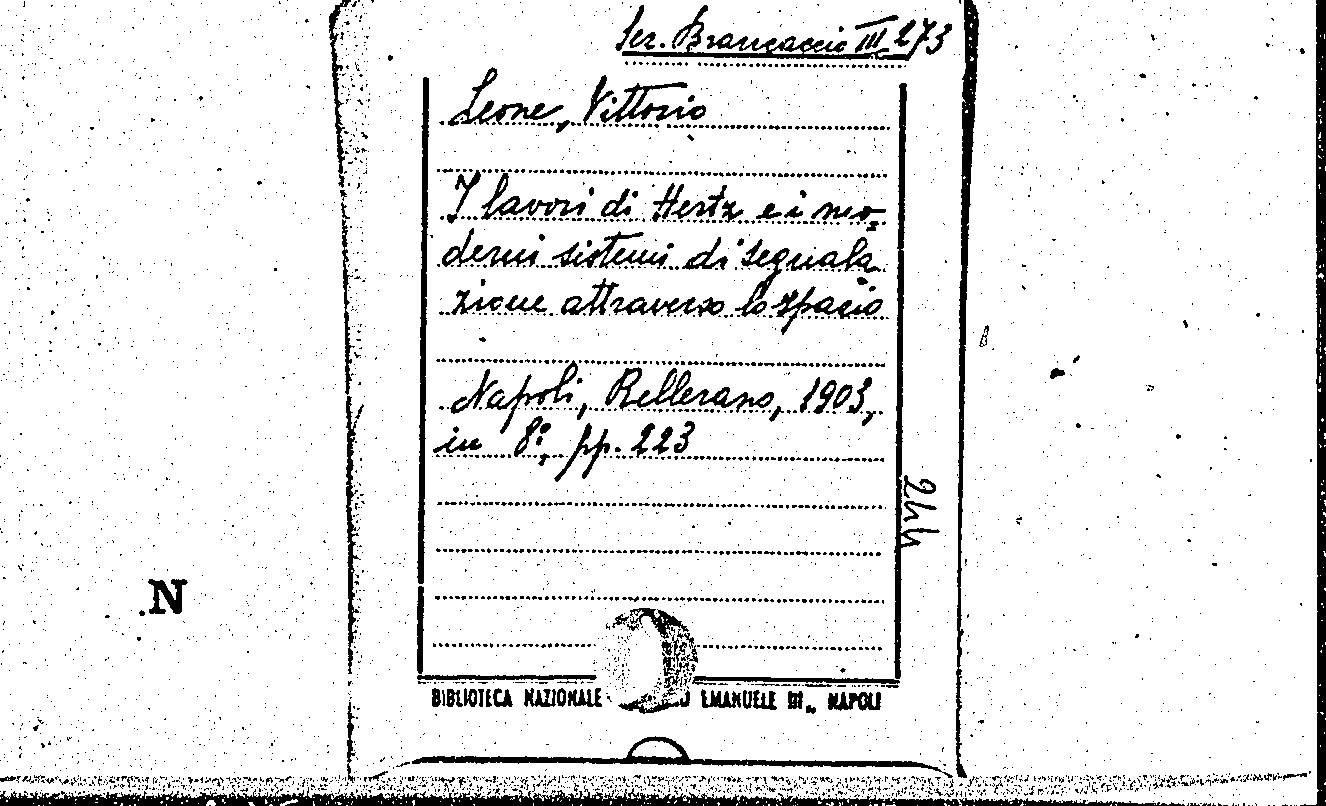 Ser. Brancaccio III 273
Leone, Vittorio
I lavori di Hertz e i mo=
derni sistemi di segnala
zione attraverso lo spazio
Napoli, Pellerano, 1903,
in 8°, pp. 223
244
N
BIBLIOTECA NAZIONALE EMANUELE III„ NAPOLI